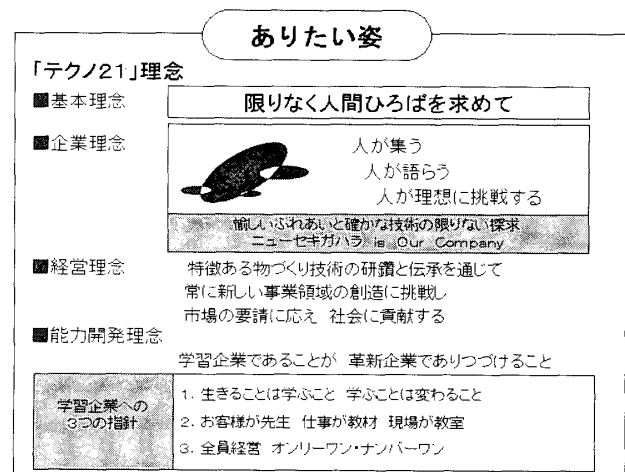 ありたい姿
「テクノ21」理念
■基本理念
限りなく人間ひろばを求めて
■企業理念
人が集う
人が語らう
人が理想に挑戦する
愉しいふれあいと確かな技術の限りない探求
ニューセキガハラ is Our Company
■経営理念
特徴ある物づくり技術の研鑽と伝承を通じて
常に新しい事業領域の創造に挑戦し
市場の要請に応え 社会に貢献する
■能力開発理念
学習企業であることが 革新企業でありつづけること
学習企業への
3つの指針
1. 生きることは学ぶこと 学ぶことは変わること
2. お客様が先生 仕事が教材 現場が教室
3. 全員経営 オンリーワン・ナンバーワン